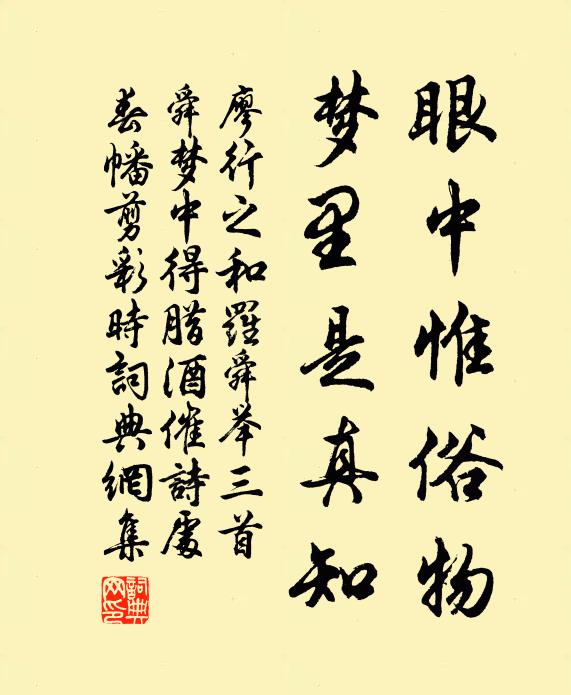 眼中惟俗物
梦里是真知
廖行之和羅舜举三首
舜梦中得腊酒催詩處
春幡剪彩時詞典網集
詞典
网印